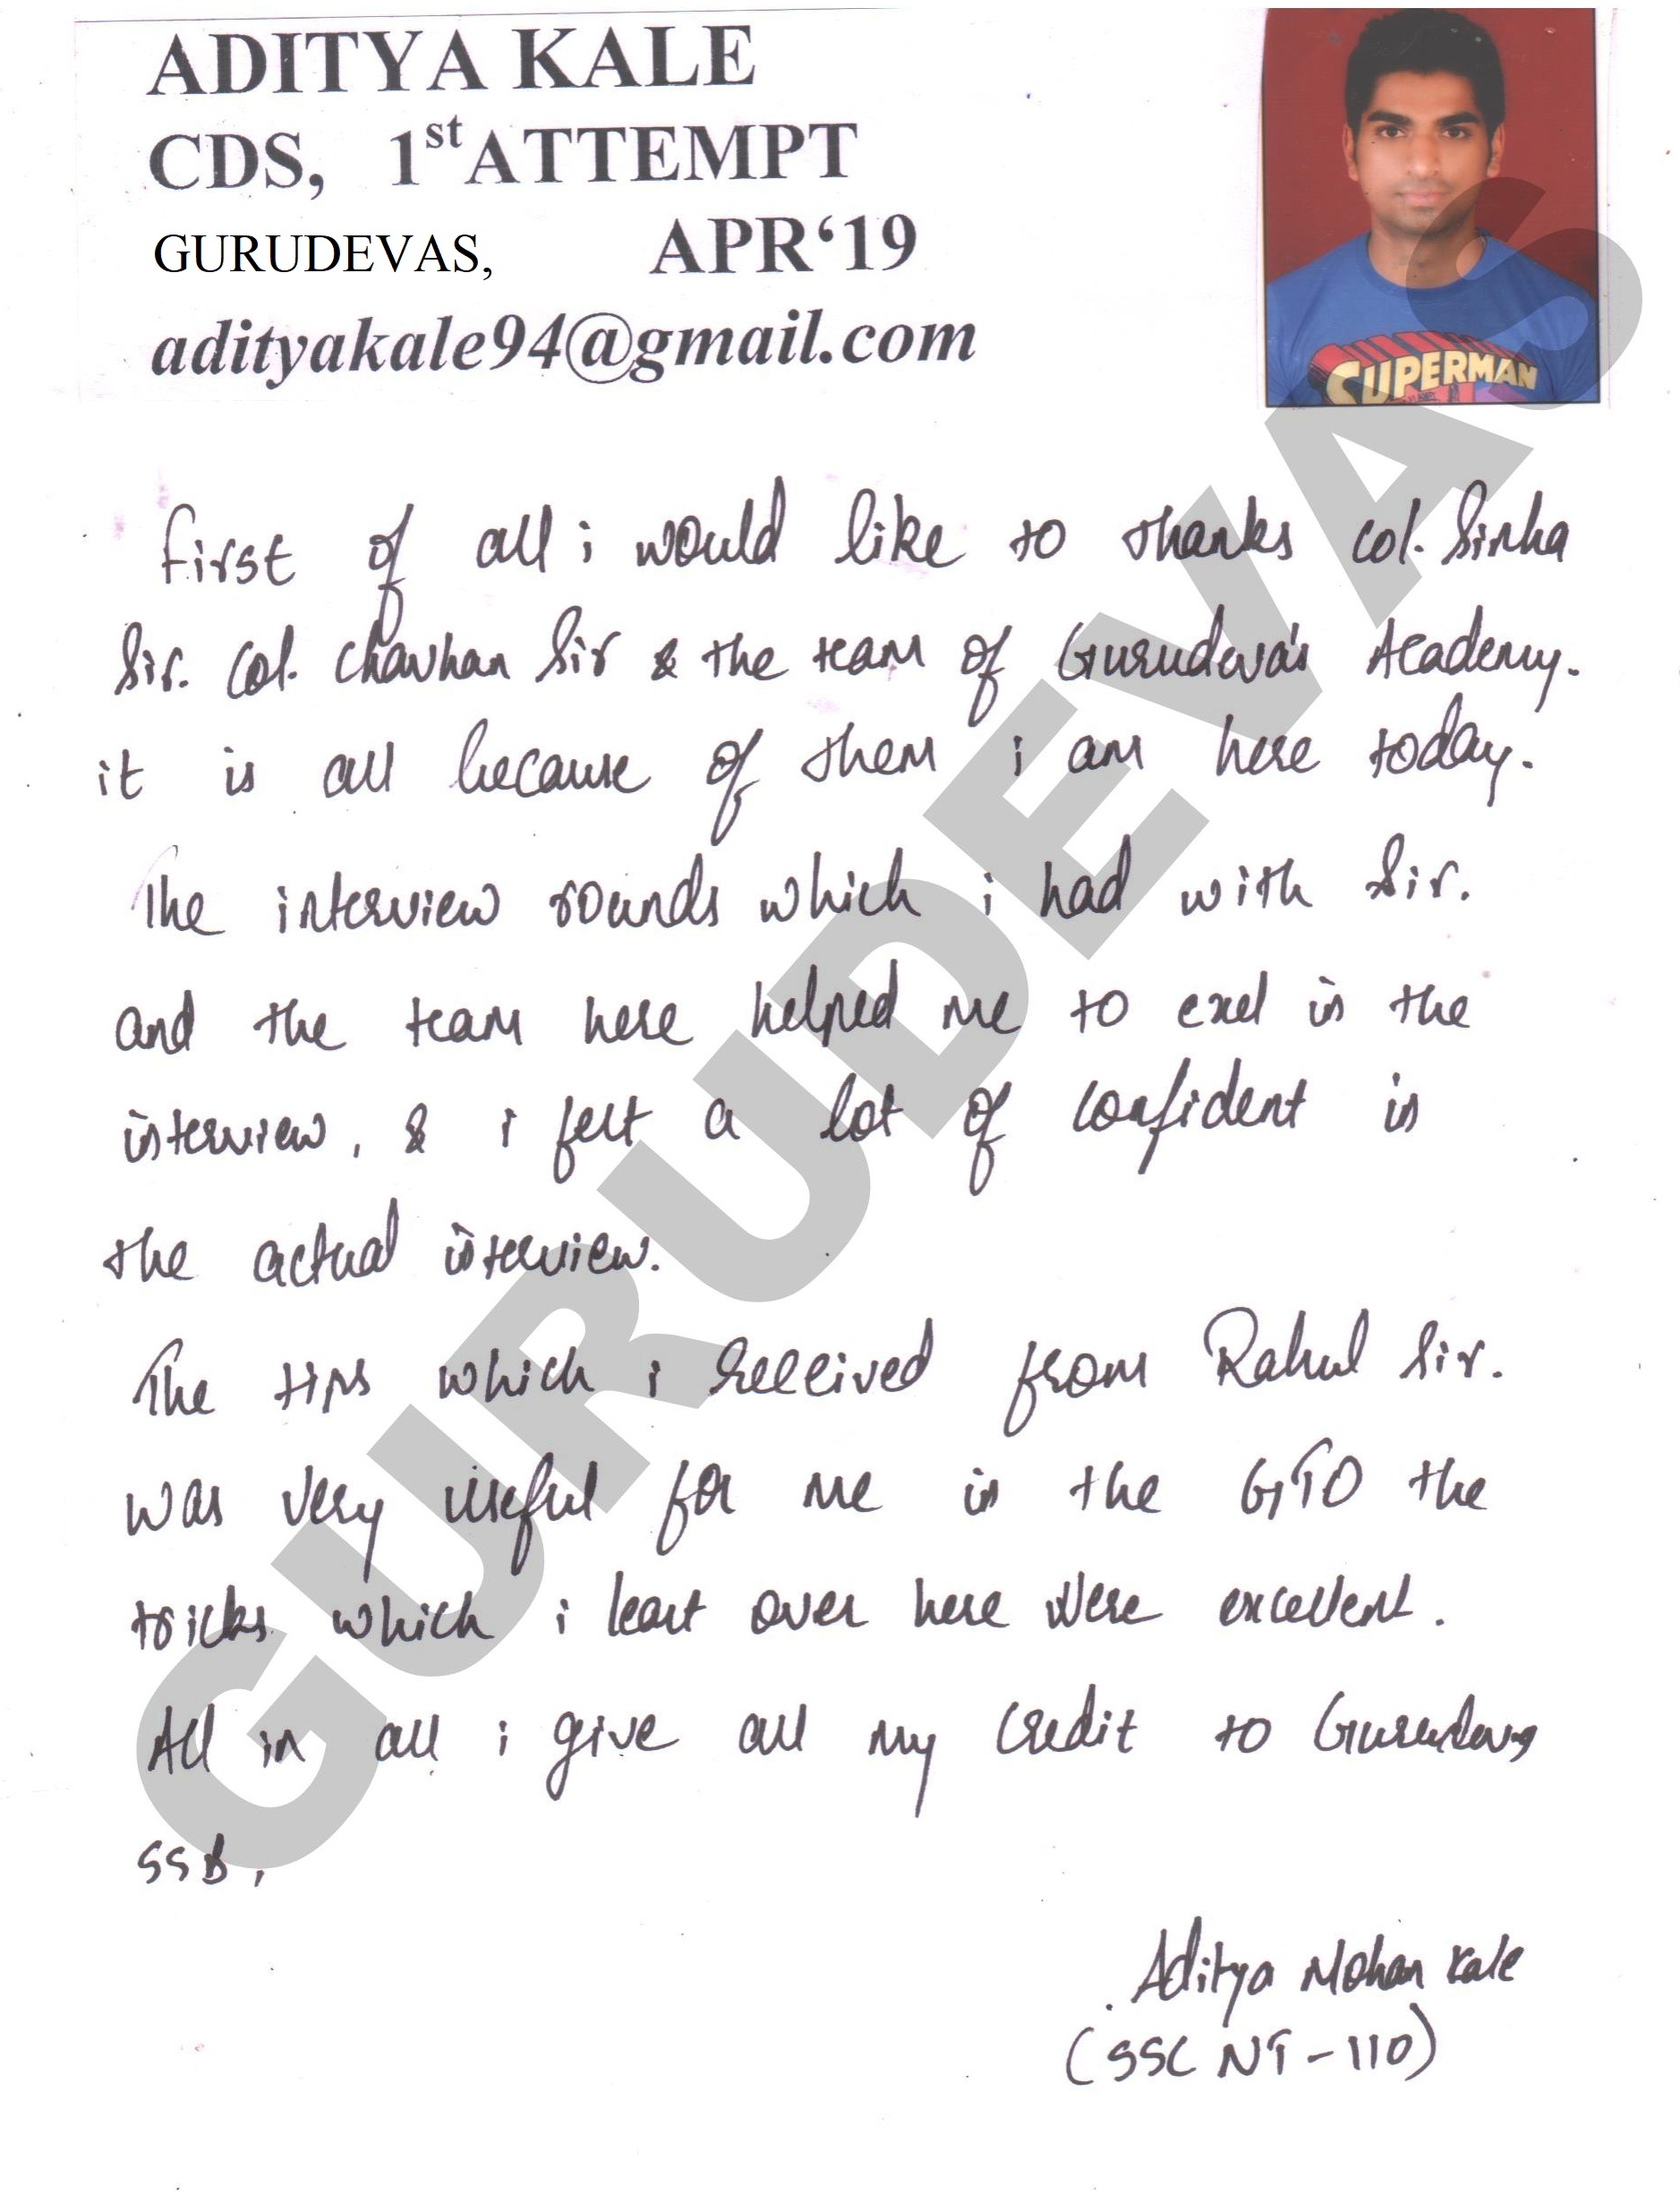 ADITYA KALE
CDS, 1st ATTEMPT
GURUDEVAS, APR‘19
adityakale94@gmail.com
SUPERMAN
First of all i would like to thanks Col. Sinha
Sir. Col. Chavhan Sir & the team of Gurudeva's Academy.
it is all because of them i am here today.
The interview rounds which i had with Sir.
and the team here helped me to exel in the
interview, & i felt a lot of confident in
the actual interview.
The tips which i received from Rahul Sir.
was very useful for me in the GTO the
tricks which i leart over here were excellent.
All in all i give all my credit to Gurudevas
SSB,
Aditya Mohan Kale
(SSC NT - 110)
GURUDEVAS